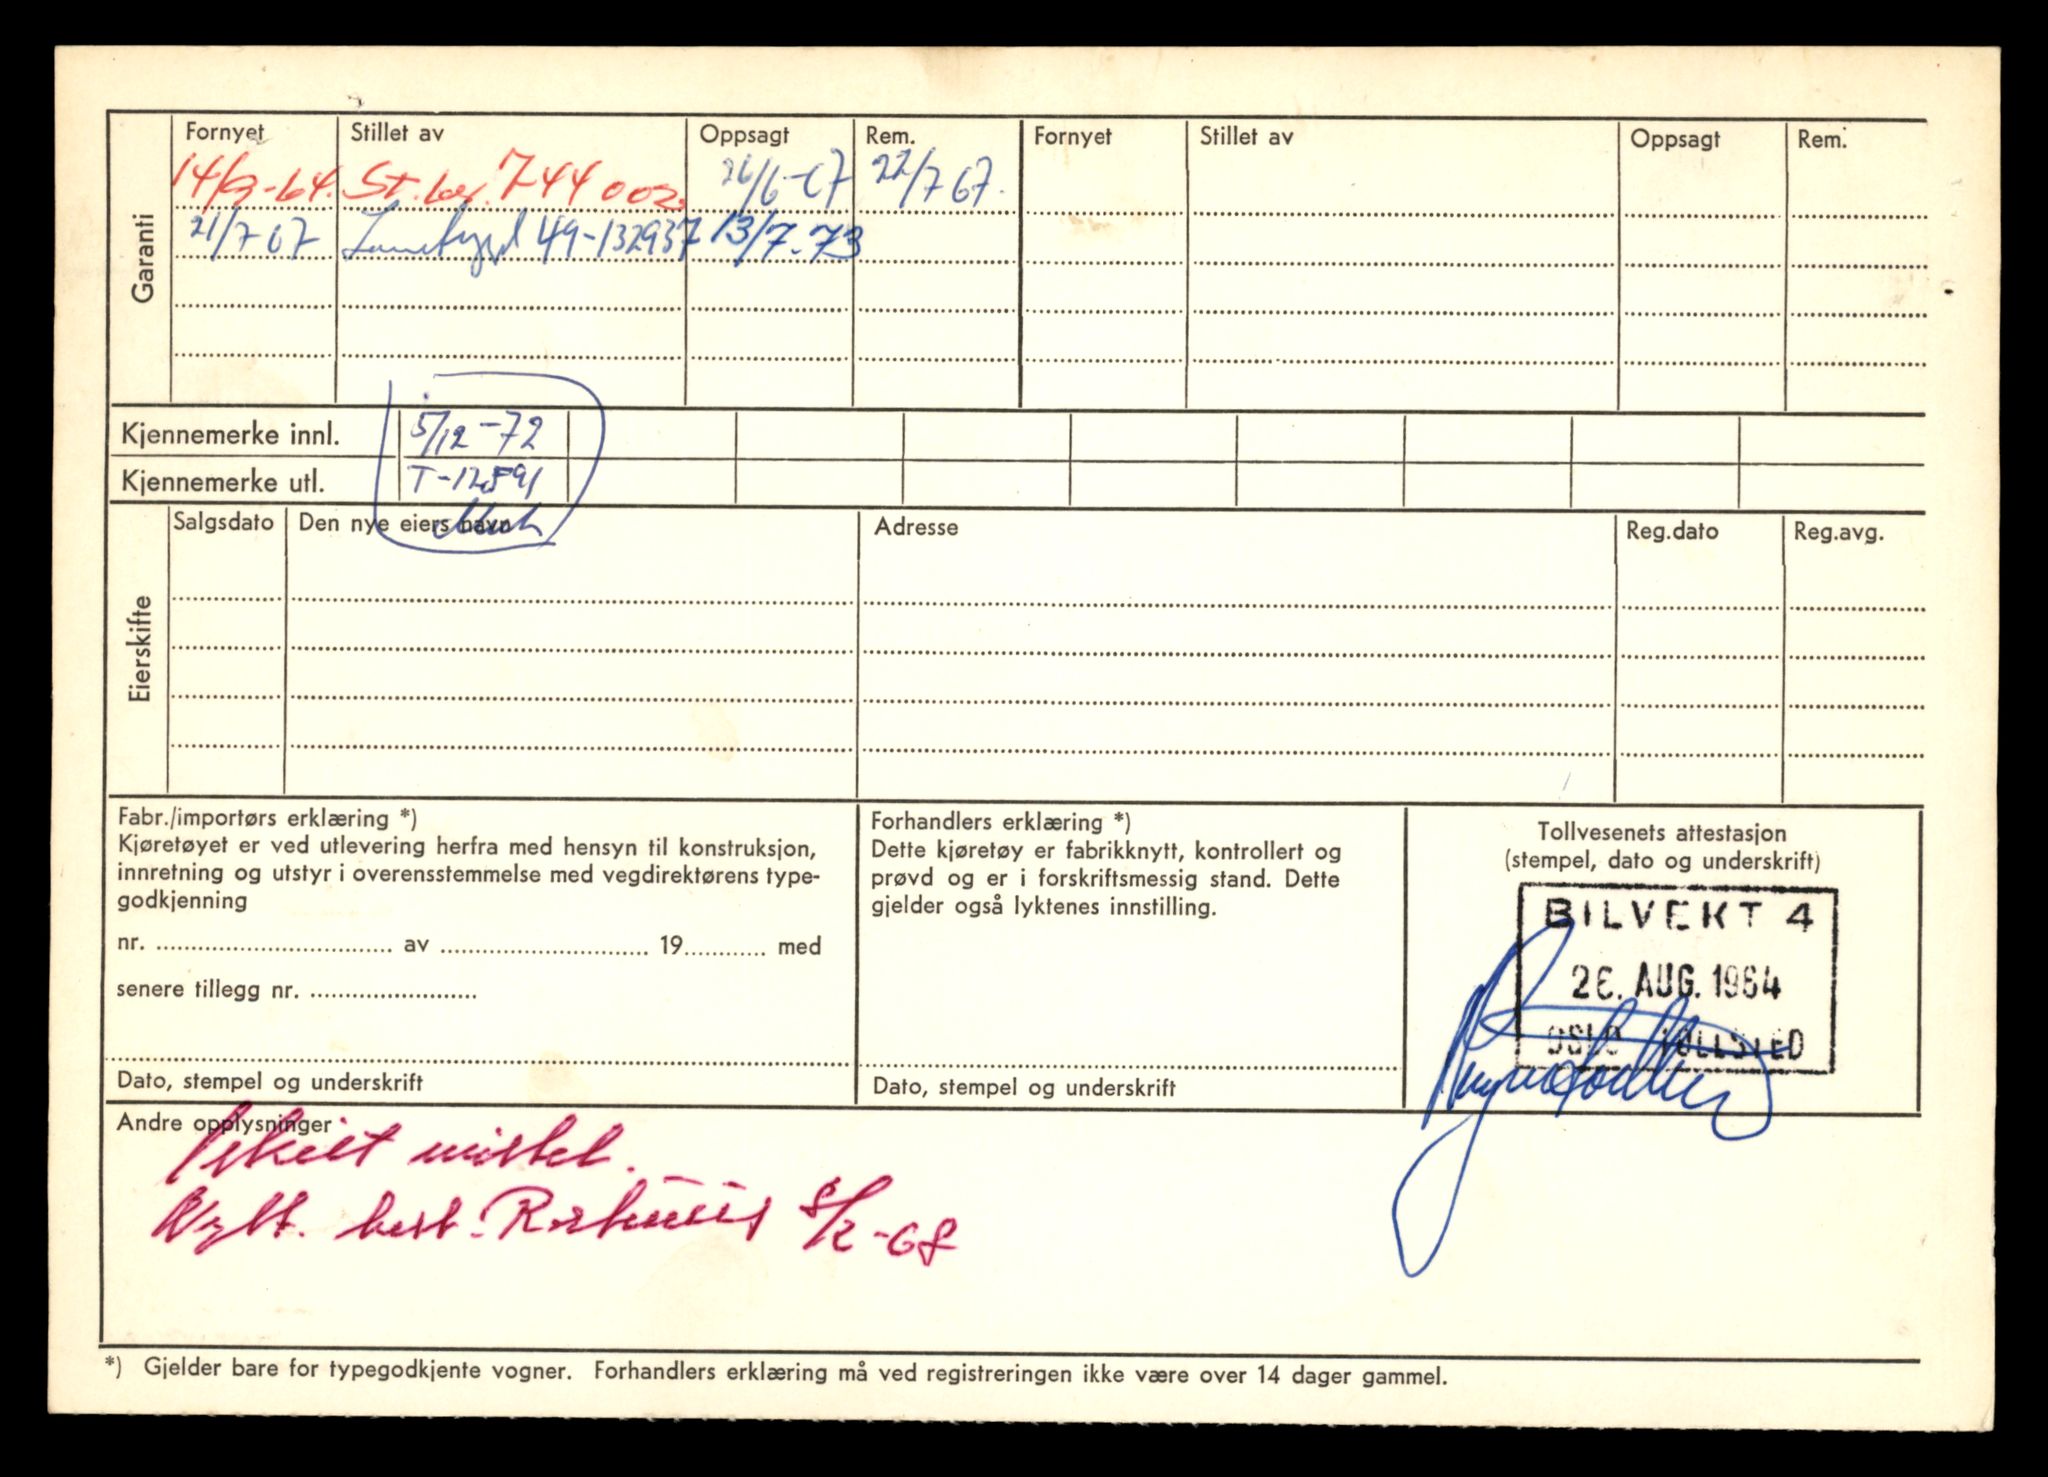 Garanti
Fornyet Stillet av Oppsagt Rem. Fornyet Stillet av Oppsagt Rem.
-64. St. 744002. 26/6-67 22/7 67.
21/7 67 49-132937 13/7-73
Kjennemerke innl. 5/12-72
Kjennemerke utl. T-12591
Eierskifte
Salgsdato Den nye eiers navn Adresse Reg.dato Reg.avg.
Fabr./importørs erklæring *)
Kjøretøyet er ved utlevering herfra med hensyn til konstruksjon,
innretning og utstyr i overensstemmelse med vegdirektørens type-
godkjenning
nr. .......... av .......... 19.......... med
senere tillegg nr. ..........
Dato, stempel og underskrift
Forhandlers erklæring *)
Dette kjøretøy er fabrikknytt, kontrollert og
prøvd og er i forskriftsmessig stand. Dette
gjelder også lyktenes innstilling.
Dato, stempel og underskrift
Tollvesenets attestasjon
(stempel, dato og underskrift)
BILVEKT 4
26. AUG. 1964
OSLO TOLLSTED
Andre opplysninger
1 skilt mistet.
Nytt. best. 8/2-68
*) Gjelder bare for typegodkjente vogner. Forhandlers erklæring må ved registreringen ikke være over 14 dager gammel.